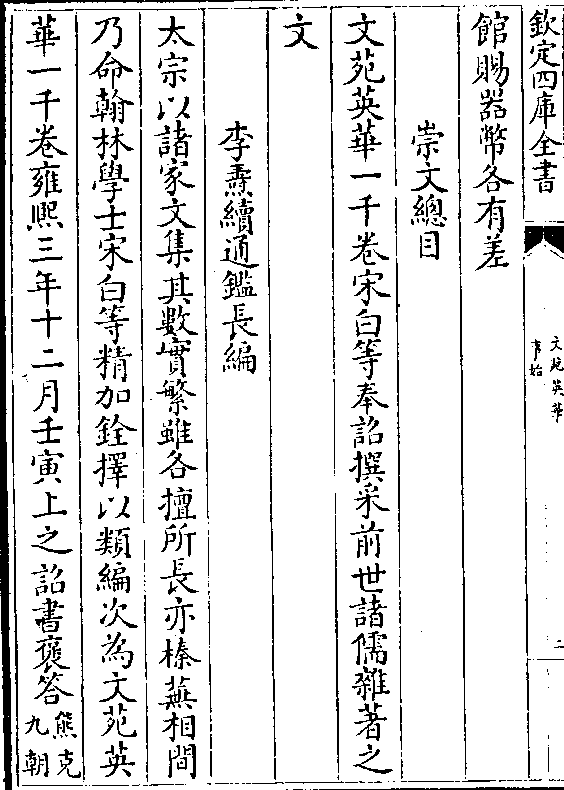 欽定四庫全書
文苑英華
事始
二
館賜器幣各有差
崇文總目
文苑英華一千卷宋白等奉詔撰采前世諸儒雜著之
文
李燾續通鑑長編
太宗以諸家文集其數實繁雖各擅所長亦榛蕪相間
乃命翰林學士宋白等精加銓擇以類編次為文苑英
華一千卷雍熙三年十二月壬寅上之詔書褒答熊克
九朝